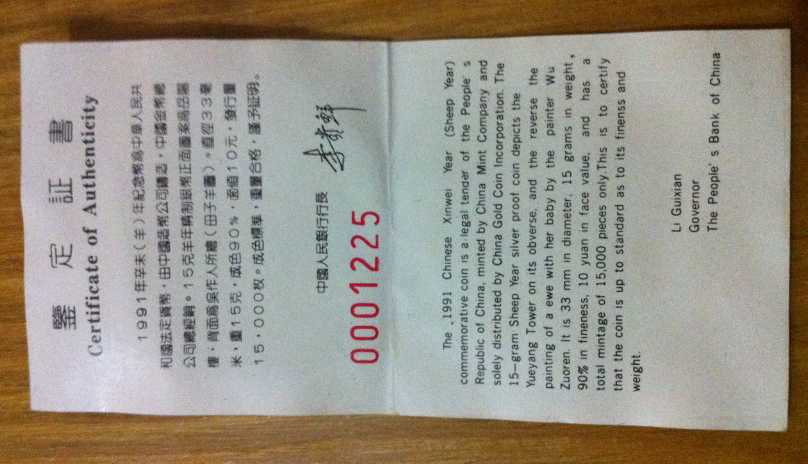 鑒定証書
Certificate of Authenticity
1991年辛未(羊)年紀念幣爲中華人民共
和國法定貨幣,由中國造幣公司鑄造,中國金幣總
公司總經銷。15克羊年精制銀幣正面圖案爲岳陽
樓;背面爲吳作人所繪(母子羊圖)。直徑33毫
米,重15克,成色90%,面值10元,發行量
15,000枚。成色標準,重量合格,謹予証明。
中國人民銀行行長
李貴鮮
0001225
The .1991 Chinese Xinwei Year (Sheep Year)
commemorative coin is a legal tender of the People's
Republic of China, minted by China Mint Company and
solely distributed by China Gold Coin Incorporation. The
15-gram Sheep Year silver proof coin depicts the
Yueyang Tower on its obverse, and the reverse the
painting of a ewe with her baby by the painter Wu
Zuoren. It is 33 mm in diameter, 15 grams in weight,
90% in fineness, 10 yuan in face value, and has a
total mintage of 15,000 pieces only.This is to certify
that the coin is up to standard as to its finenss and
weight.
Li Guixian
Governor
The People's Bank of China